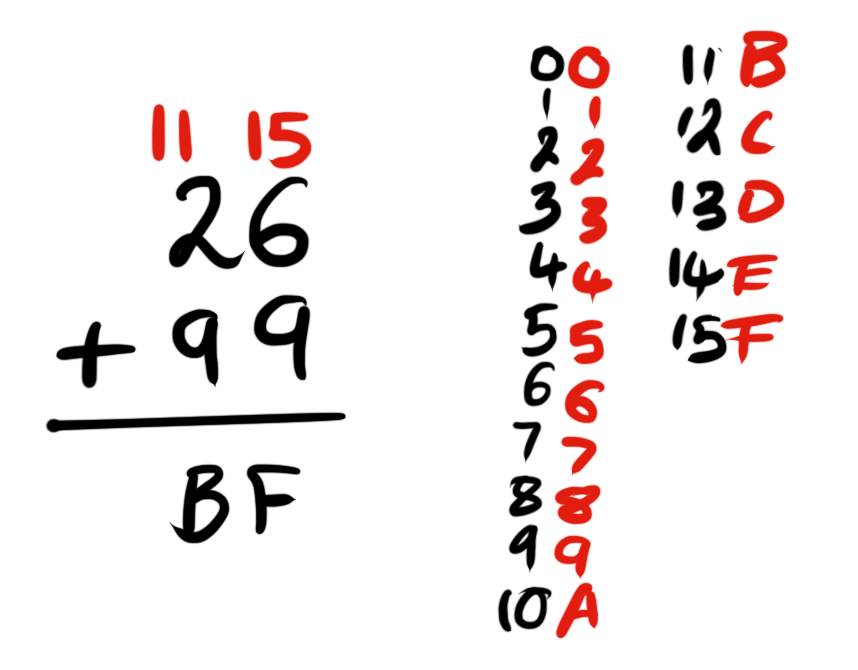 11 15
26
+ 99
BF
0 0
1 1
2 2
3 3
4 4
5 5
6 6
7 7
8 8
9 9
10 A
11 B
12 C
13 D
14 E
15 F